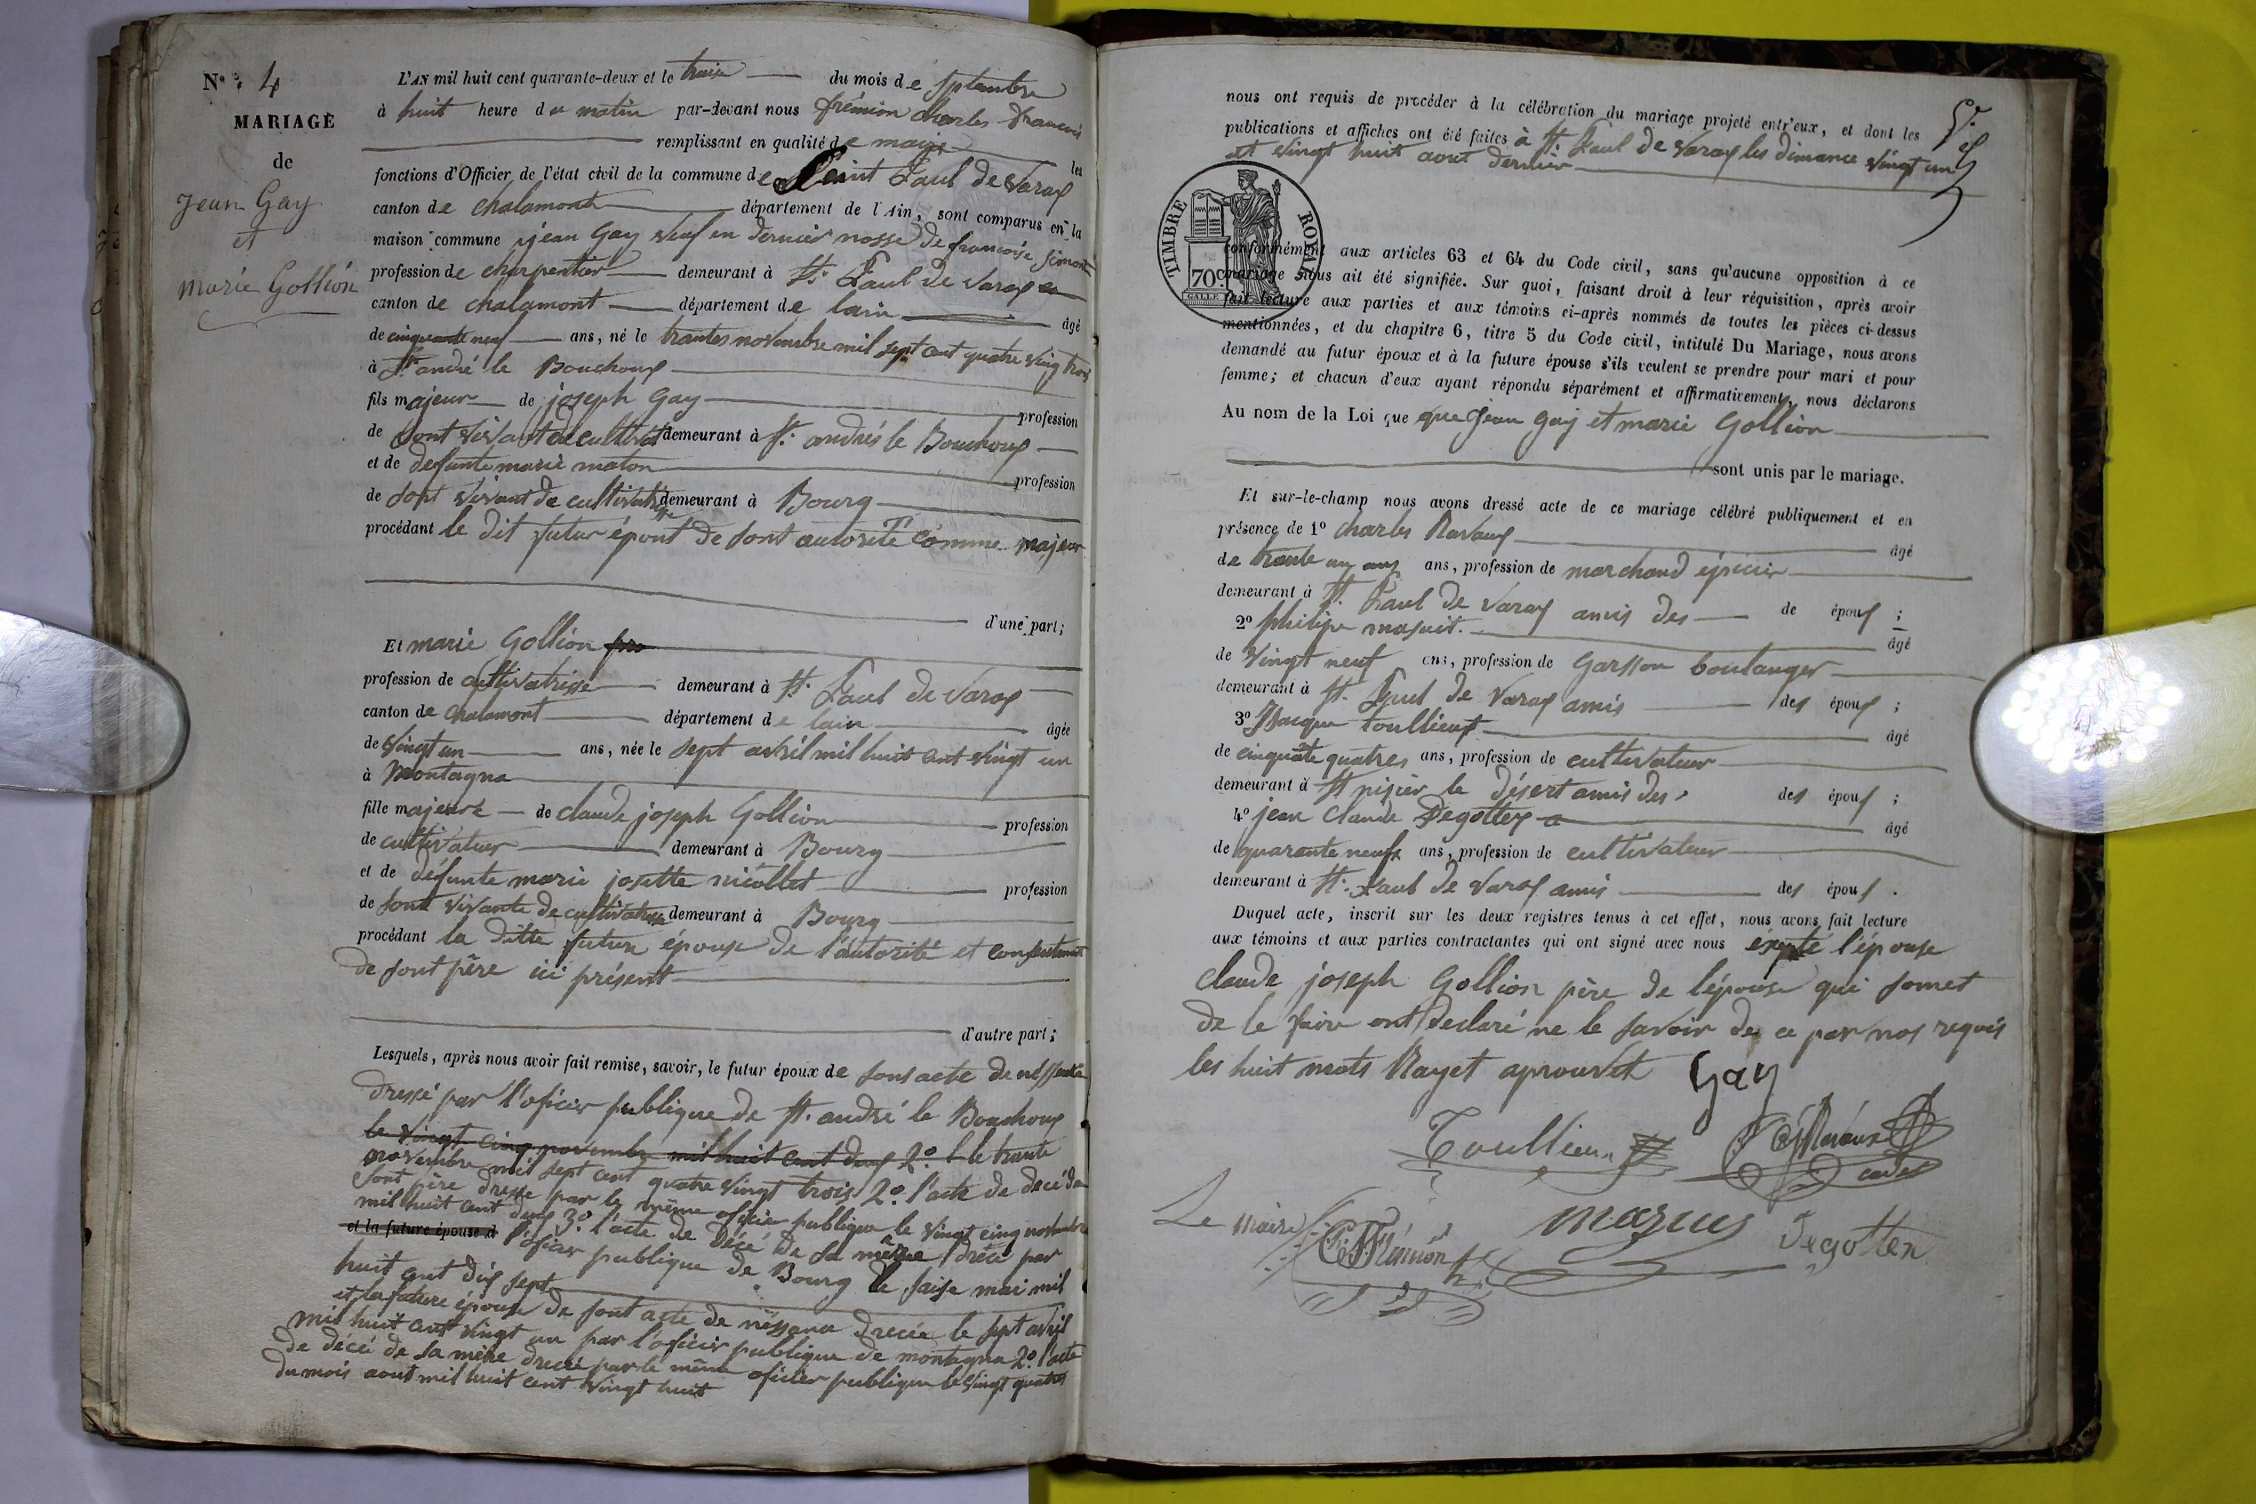 N° : 4
MARIAGE
de
Jean Gay
et
marie Gollion
L'AN mil huit cent quarante-deux et le traise du mois de septembre
à huit heure du matin par-devant nous frémion charles françois
remplissant en qualité de maire les
fonctions d'Officier de l'état civil de la commune de Saint Paul de Varax
canton de chalamont département de l'Ain, sont comparus en la
maison commune jean Gay veuf en dernier nosse de françoise Simonet
profession de charpentier demeurant à St. Paul de Varax
canton de chalamont département de lain âgé
de cinquante neuf ans, né le trantes novembre mil sept cent quatre vingt trois
à St andré le Bouchoux
fils majeur de joseph Gay profession
de sont vivant de cultivat demeurant à St. andrés le Bouchoux
et de defunte marie maton profession
de sont vivant de cultivatrisse demeurant à Bourg
procédant le dit futur épout de sont autorité comme majeur
d'une part;
Et marie Gollion
profession de cultivatrisse demeurant à St. Paul de Varax
canton de chalamont département de lain âgée
de vingt un ans, née le sept avril mil huit cent vingt un
à Montagna
fille majeure de claude joseph Gollion profession
de cultivateur demeurant à Bourg
et de défunte marie josette nicollet profession
de sont vivante de cultivatrisse demeurant à Bourg
procédant la ditte future épouse de l'autorité et consentement
de sont père ici présent
d'autre part;
Lesquels, après nous avoir fait remise, savoir, le futur époux de sont acte de nessence
dressé par l'oficier publique de St. andré le Bouchoux
le vingt cinq novembre mil huit cent dous 2° le trante
novembre mil sept cent quatre vingt trois 2° l'acte de decé de
sont père dressé par le même oficier publique le vingt cinq novembre
mil huit cent dous 3° l'acte de décé de sa mère drécé par
et la future épouse d l'oficier publique de Bourg le saise mai mil
huit cent dix sept
et la future épouse de sont acte de nessence drecée le sept avril
mil huit cent vingt un par l'oficier publique de montagna 2° l'acte
de décé de sa mère drecé par le même oficier publique le vingt quatres
du mois aout mil huit cent vingt huit
nous ont requis de procéder à la célébration du mariage projeté entr'eux, et dont les
publications et affiches ont été faites à St. Paul de Varax les dimance vingt un
et vingt huit aout dernier
TIMBRE ROYAL
70c
conformément aux articles 63 et 64 du Code civil, sans qu'aucune opposition à ce
mariage nous ait été signifiée. Sur quoi, faisant droit à leur réquisition, après avoir
fait lecture aux parties et aux témoins ci-après nommés de toutes les pièces ci-dessus
mentionnées, et du chapitre 6, titre 5 du Code civil, intitulé Du Mariage, nous avons
demandé au futur époux et à la future épouse s'ils veulent se prendre pour mari et pour
femme; et chacun d'eux ayant répondu séparément et affirmativement, nous déclarons
Au nom de la Loi que que jean Gay et marie Gollion
sont unis par le mariage.
Et sur-le-champ nous avons dressé acte de ce mariage célébré publiquement et en
présence de 1° charles Ravaux âgé
de trante un ans ans, profession de marchand épicier
demeurant à St. Paul de Varax amis des de époux ;
2° philipe masuit. âgé
de vingt neuf ans, profession de Garsson boulanger
demeurant à St. Paul de Varax amis des époux ;
3° Jacque toullieux âgé
de cinquate quatres ans, profession de cultivateur
demeurant à St nisier le désert amis des des époux ;
4° jean claude Degottex âgé
de quarante neufx ans, profession de cultivateur
demeurant à St. Paul de Varax amis des époux .
Duquel acte, inscrit sur les deux registres tenus à cet effet, nous avons fait lecture
aux témoins et aux parties contractantes qui ont signé avec nous éxepté l'épouse
claude joseph Gollion père de l'épouse qui somet
de le faire ont declaré ne le savoir de ce par nos requis
les huit mots Rayet aprouvet Gay
Toullieu Ravaux
cadet
Le maire C. F. Frémion Degotten